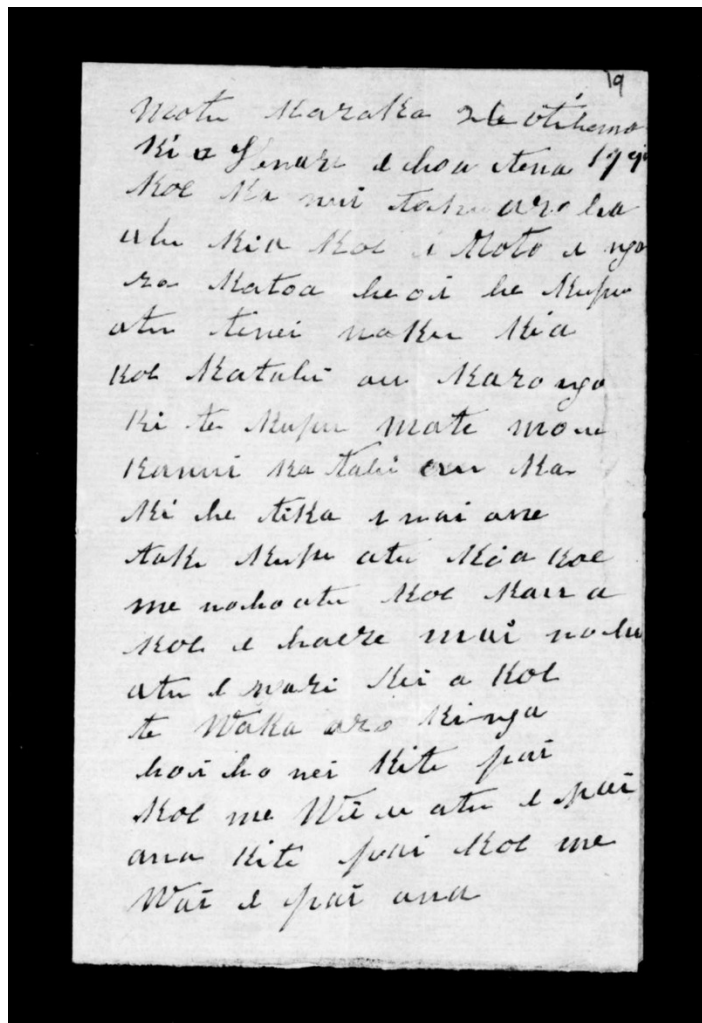 19
Motu Karaka 26 otihema
Ki a Henare e hoa tena
Koe Ka nui taku aro ha
atu Kia Koe i Roto i nga
ra Katoa heoi he Kupu
atu tenei naku Kia
Koe Katahi au Karo ngo
Ki te Kupu mate mou
Kanui Ka tahi au Ka
Ki he tika i mai ane
taku Kupu atu Kia Koe
me noho atu Koe Kaua
Koe e haere mai noho
atu e pari Kei a Koe
te Waka aro Ki nga
hoi ho nei Kite pai
Koe me Wi u atu e pai
ana Kite pai Koe me
Wai e pai ana